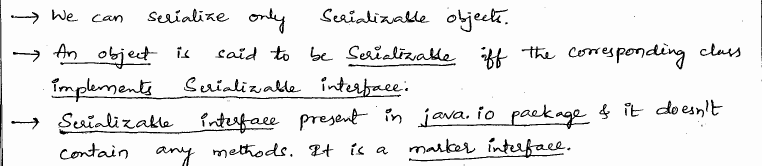 → We can serialize only Serializable objects.
→ An object is said to be Serializable iff the corresponding class
implements Serializable interface.
→ Serializable interface present in java.io package & it doesn't
contain any methods. It is a marker interface.